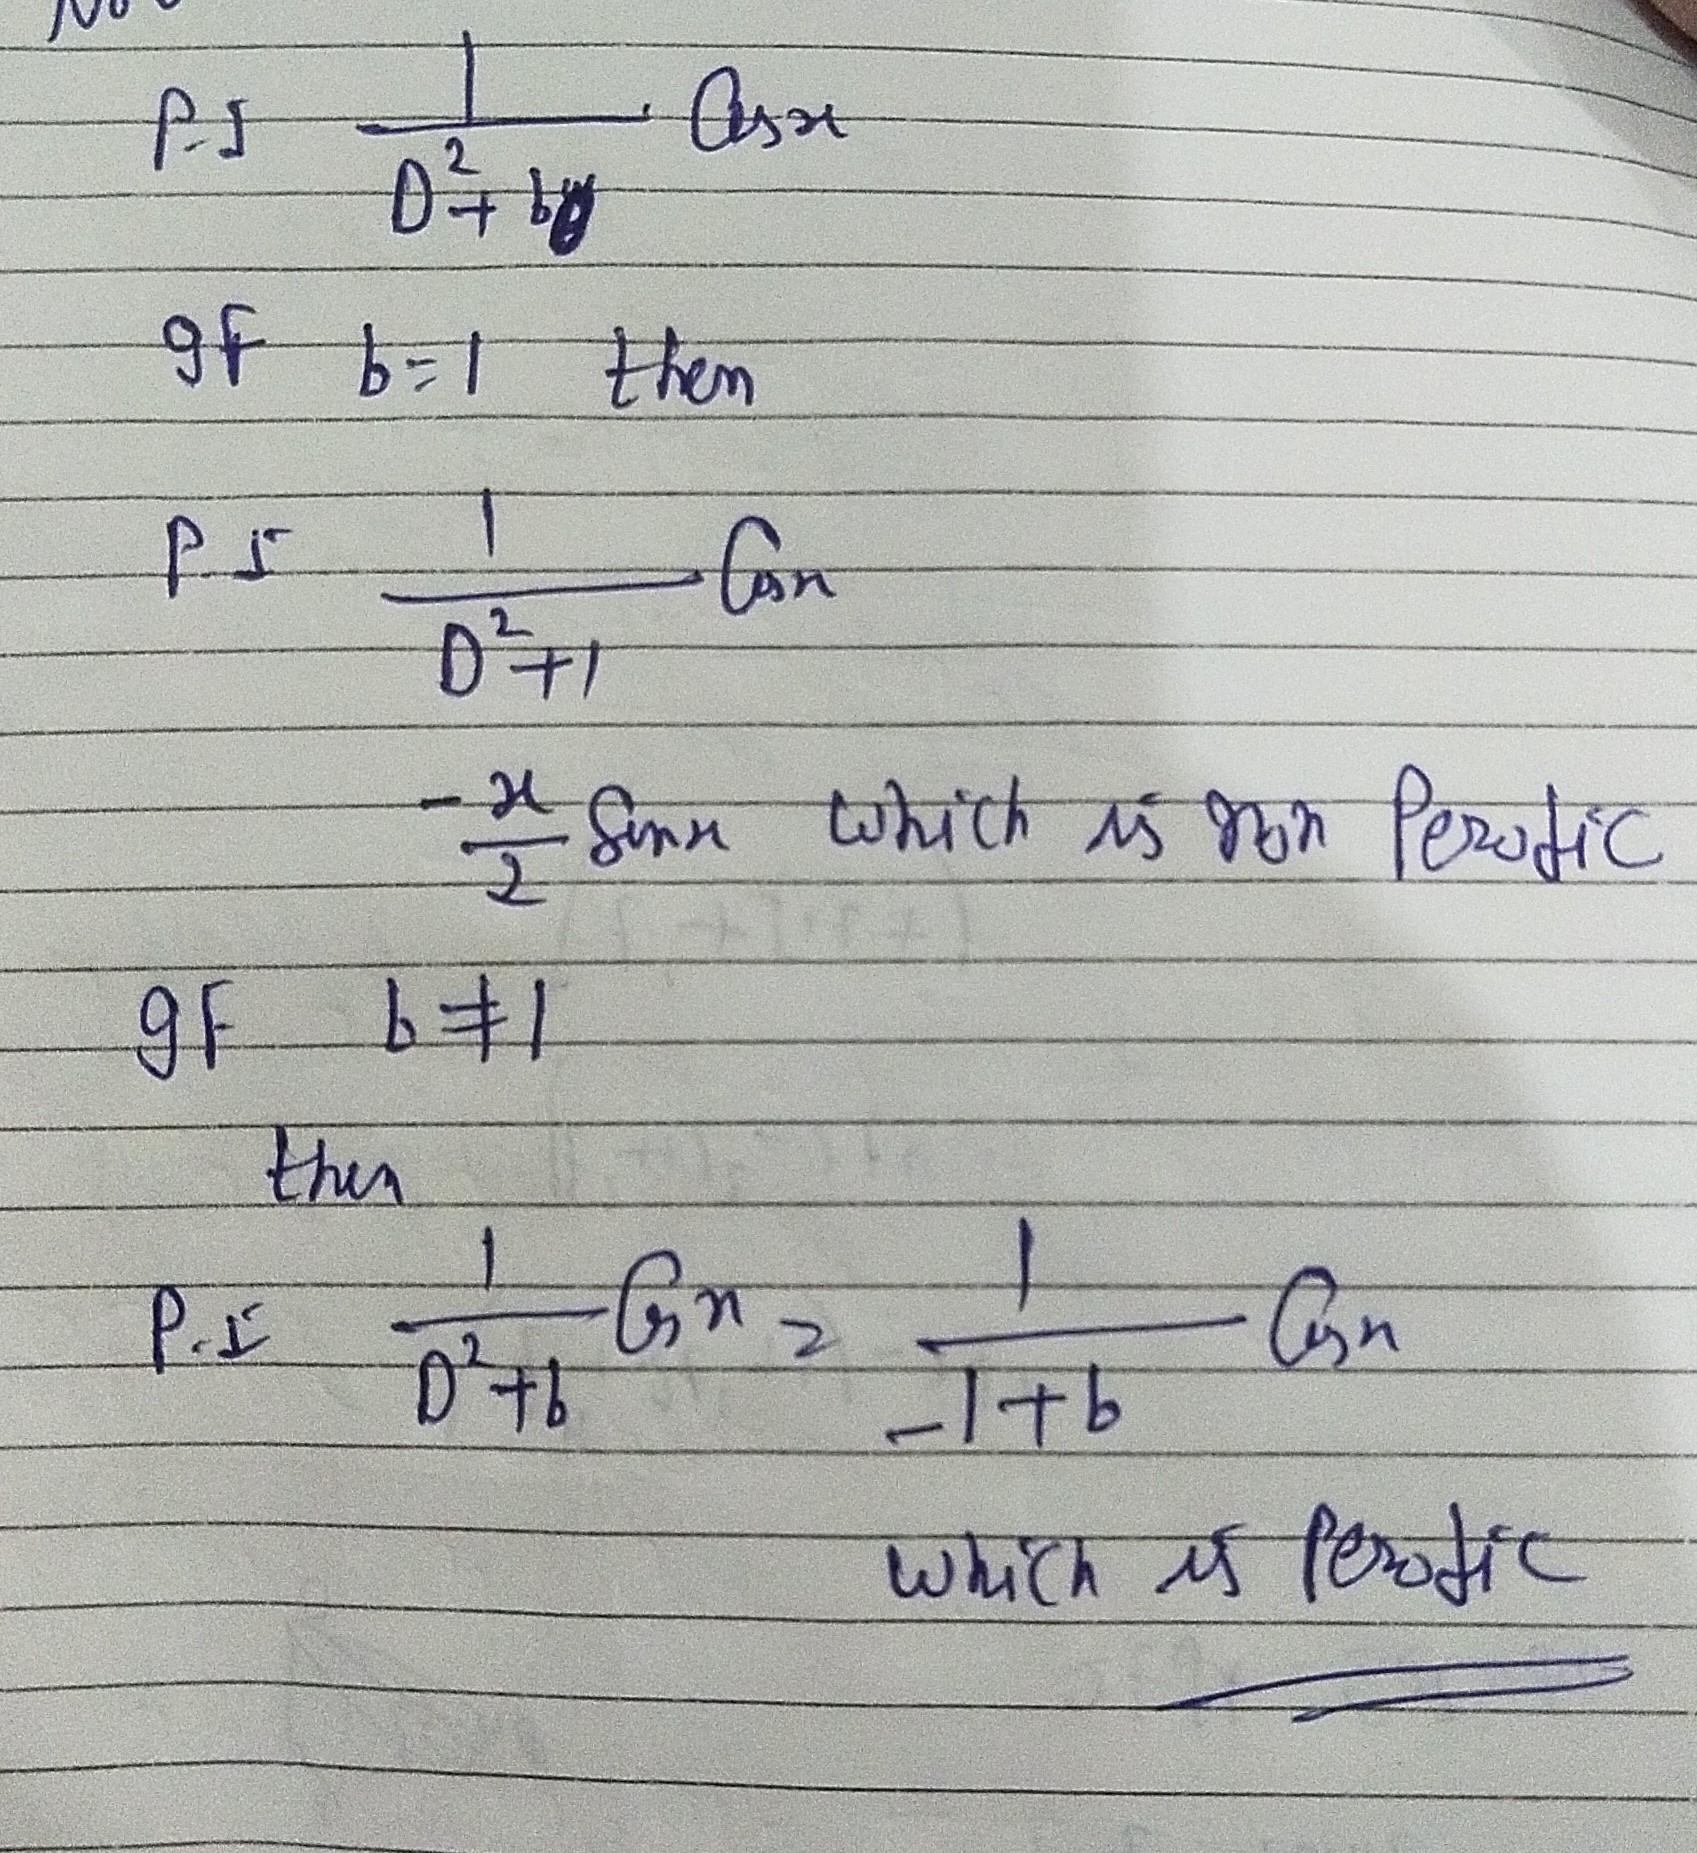 P.I 1/(D²+b) Cosx
If b=1 then
P.I 1/(D²+1) Cosx
-x/2 Sinx which is non Perodic
If b≠1
then
P.I 1/(D²+b) Cosx = 1/(-1+b) Cosx
which is Perodic